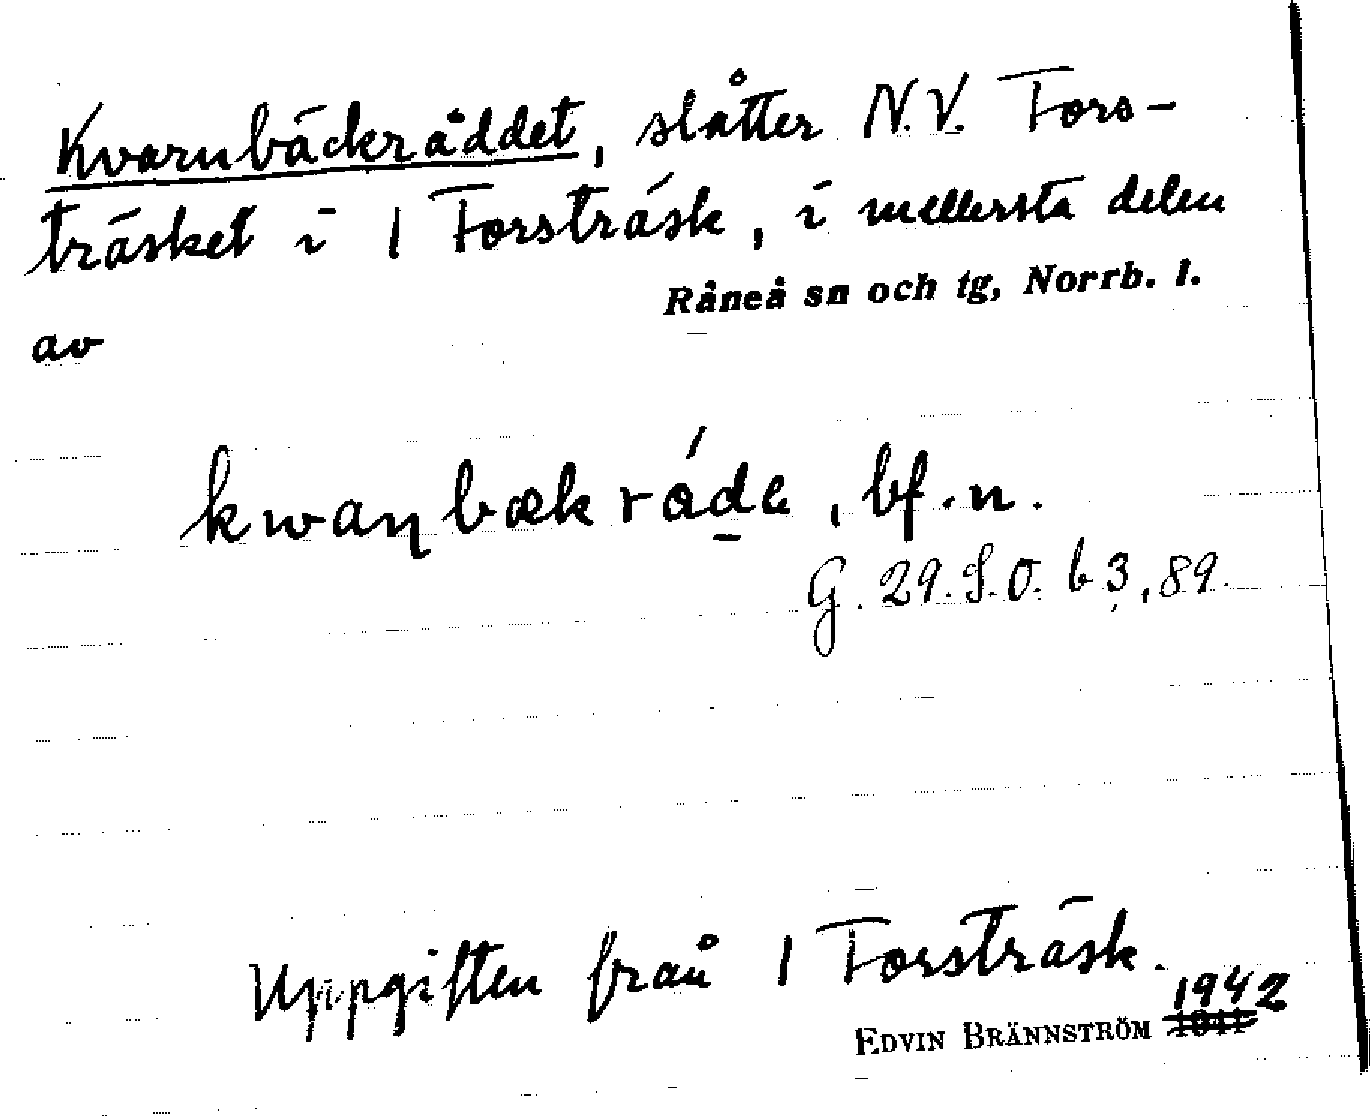 Kvarnbäckräddet, slåtter N.V. Fors-
träsket i 1 Forsträsk, i mellersta delen
av
Råneå sn och tg, Norrb. l.
kwaɳbækráde, bf. n.
G. 29. S.O. b 3, 89.
Uppgiften från 1 Forsträsk.
1942
EDVIN BRÄNNSTRÖM 1941